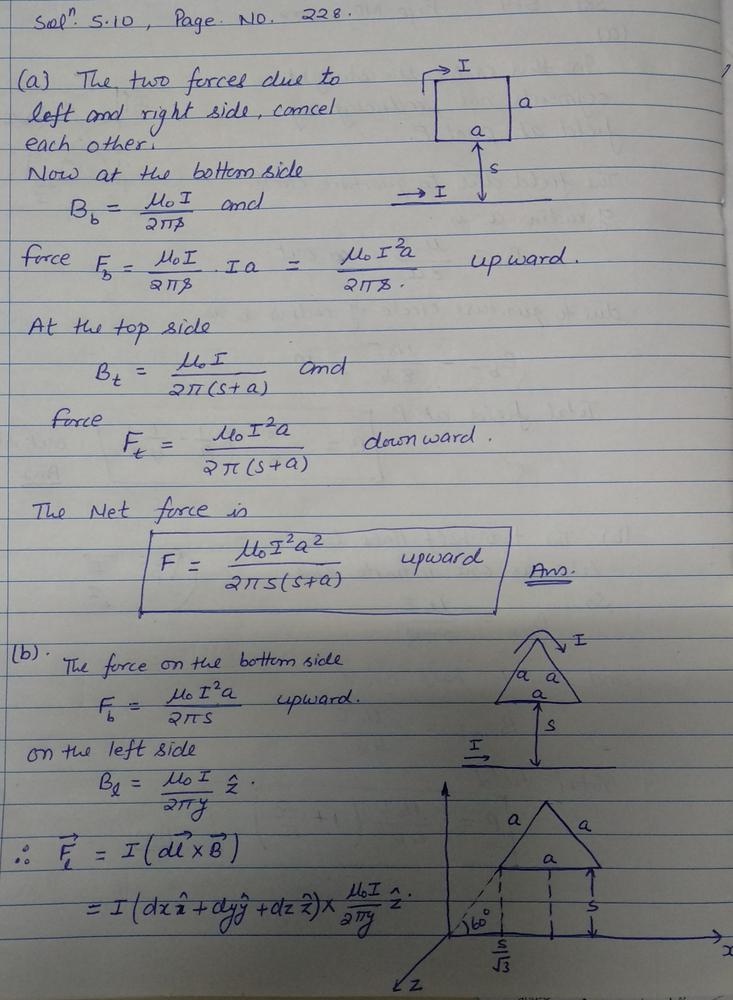 Solⁿ. 5.10, Page. No. 228.
(a) The two forces due to
left and right side, cancel
each other.
I
a
a
s
→ I
Now at the bottom side
B_b = μ₀I / 2πs and
force F_b = μ₀I / 2πs · Ia = μ₀I²a / 2πs. upward.
At the top side
B_t = μ₀I / 2π(s+a) and
force
F_t = μ₀I²a / 2π(s+a) downward.
The Net force is
F = μ₀I²a² / 2πs(s+a) upward Ans.
(b). The force on the bottom side
I
a a
a
s
I
F_b = μ₀I²a / 2πs upward.
on the left side
B_l = μ₀I / 2πy ẑ.
∴ F⃗_l = I(dl⃗ × B⃗)
= I(dx x̂ + dy ŷ + dz ẑ) × μ₀I / 2πy ẑ.
a a
a
s
60°
s/√3
x
z